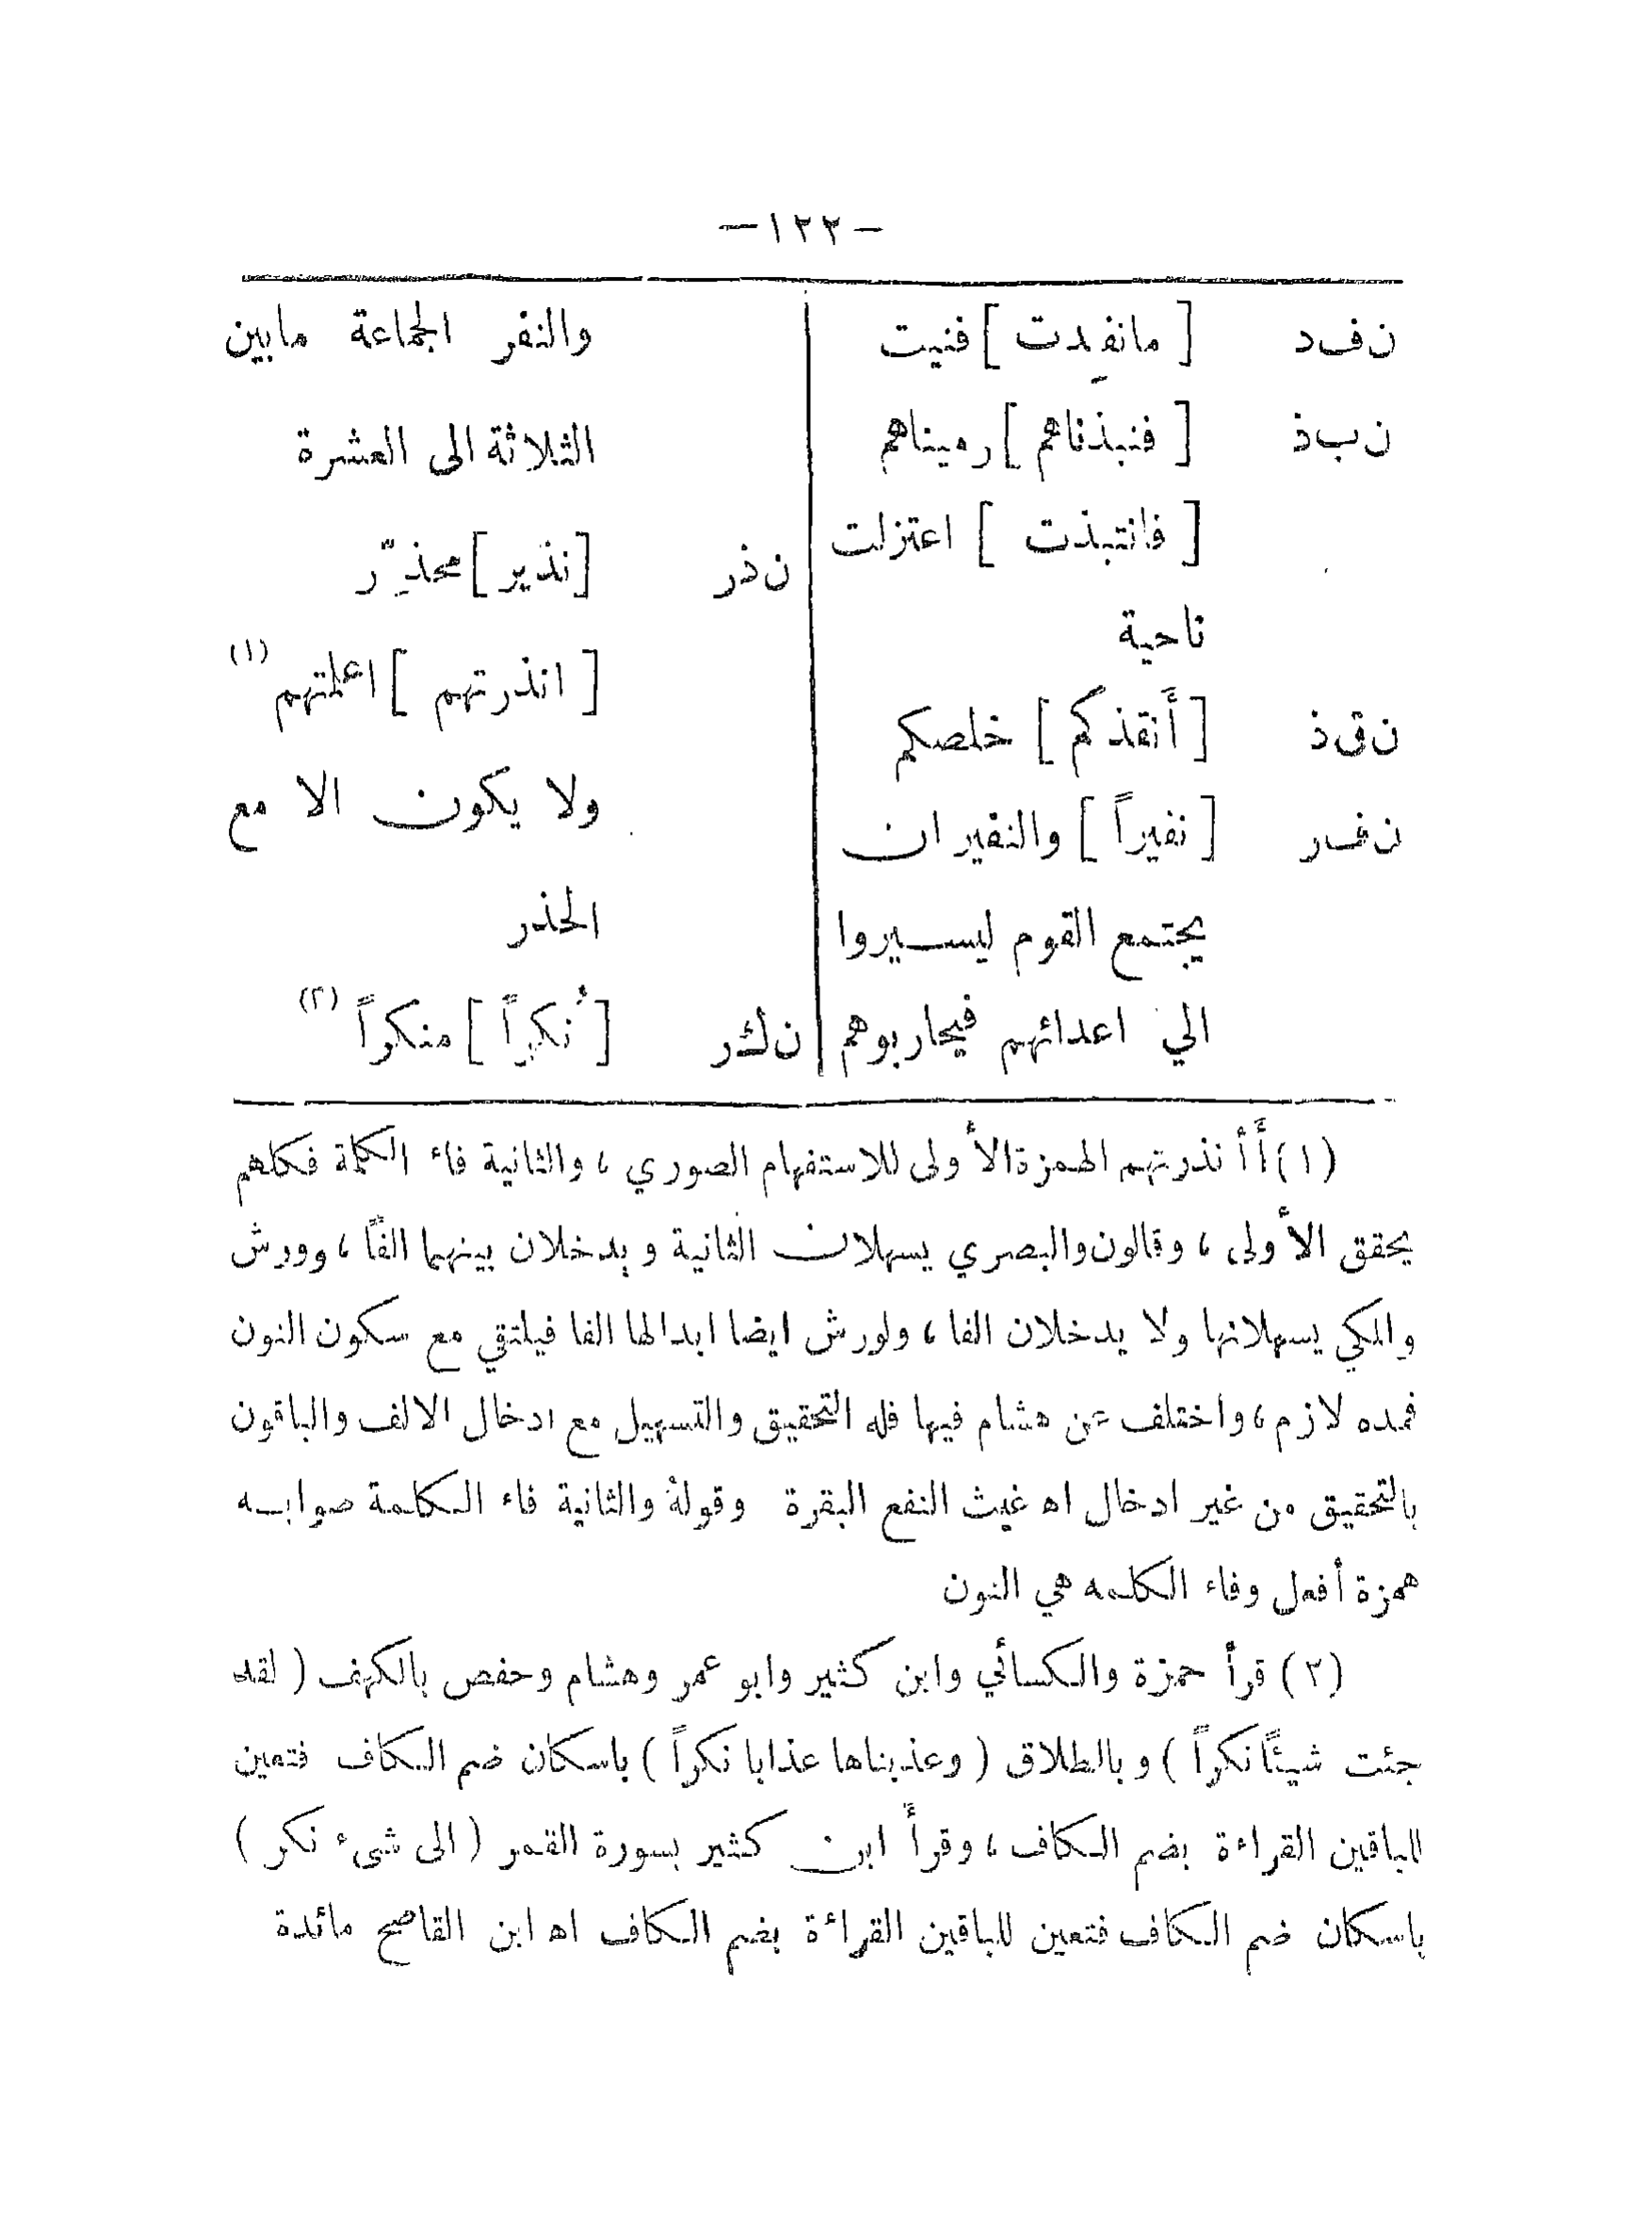 —١٢٢—
ن ف د [ مانفِدت ] فنيت
ن ب ذ [ فنبذناهم ] رميناهم
[ فانتبذت ] اعتزلت
ناحية
ن ق ذ [ أَنقذكم ] خلصكم
ن ف ر [ نفيراً ] والنفير ان
يجتمع القوم ليسيروا
الي اعدائهم فيحاربوهم
والنفر الجماعة مابين
الثلاثة الى العشرة
ن ذ ر [نذير] محذِّر
[ انذرتهم ] اعلمتهم (١)
ولا يكون الا مع
الحذر
ن ك ر [ نُكراً ] منكراً (٢)
(١) أَأْنذرتهم الهمزة الأولى للاستفهام الصوري ، والثانية فاء الكلمة فكلهم
يحقق الأولى ، وقالون والبصري يسهلان الثانية ويدخلان بينهما الفاً ، وورش
والمكي يسهلانها ولا يدخلان الفا ، ولورش ايضا ابدالها الفا فيلتقي مع سكون النون
فمده لازم ، واختلف عن هشام فيها فله التحقيق والتسهيل مع ادخال الالف والباقون
بالتحقيق من غير ادخال اه غيث النفع البقرة وقولهُ والثانية فاء الكلمة صوابه
همزة أفعل وفاء الكلمه هي النون
(٢) قرأ حمزة والكسائي وابن كثير وابو عمر وهشام وحفص بالكهف ( لقد
جئت شيئاً نكراً ) وبالطلاق ( وعذبناها عذابا نكراً ) باسكان ضم الكاف فتعين
للباقين القراءة بضم الكاف ، وقرأَ ابن كثير بسورة القمر ( الى شيء نكر )
باسكان ضم الكاف فتعين للباقين القراءة بضم الكاف اه ابن القاصح مائدة